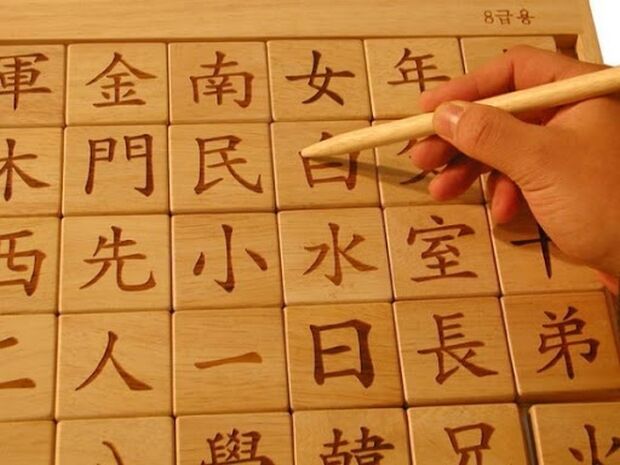 8급용
軍 金 南 女 年
木 門 民 白 父
西 先 小 水 室 十
二 人 一 日 長 弟
八 學 韓 兄 火